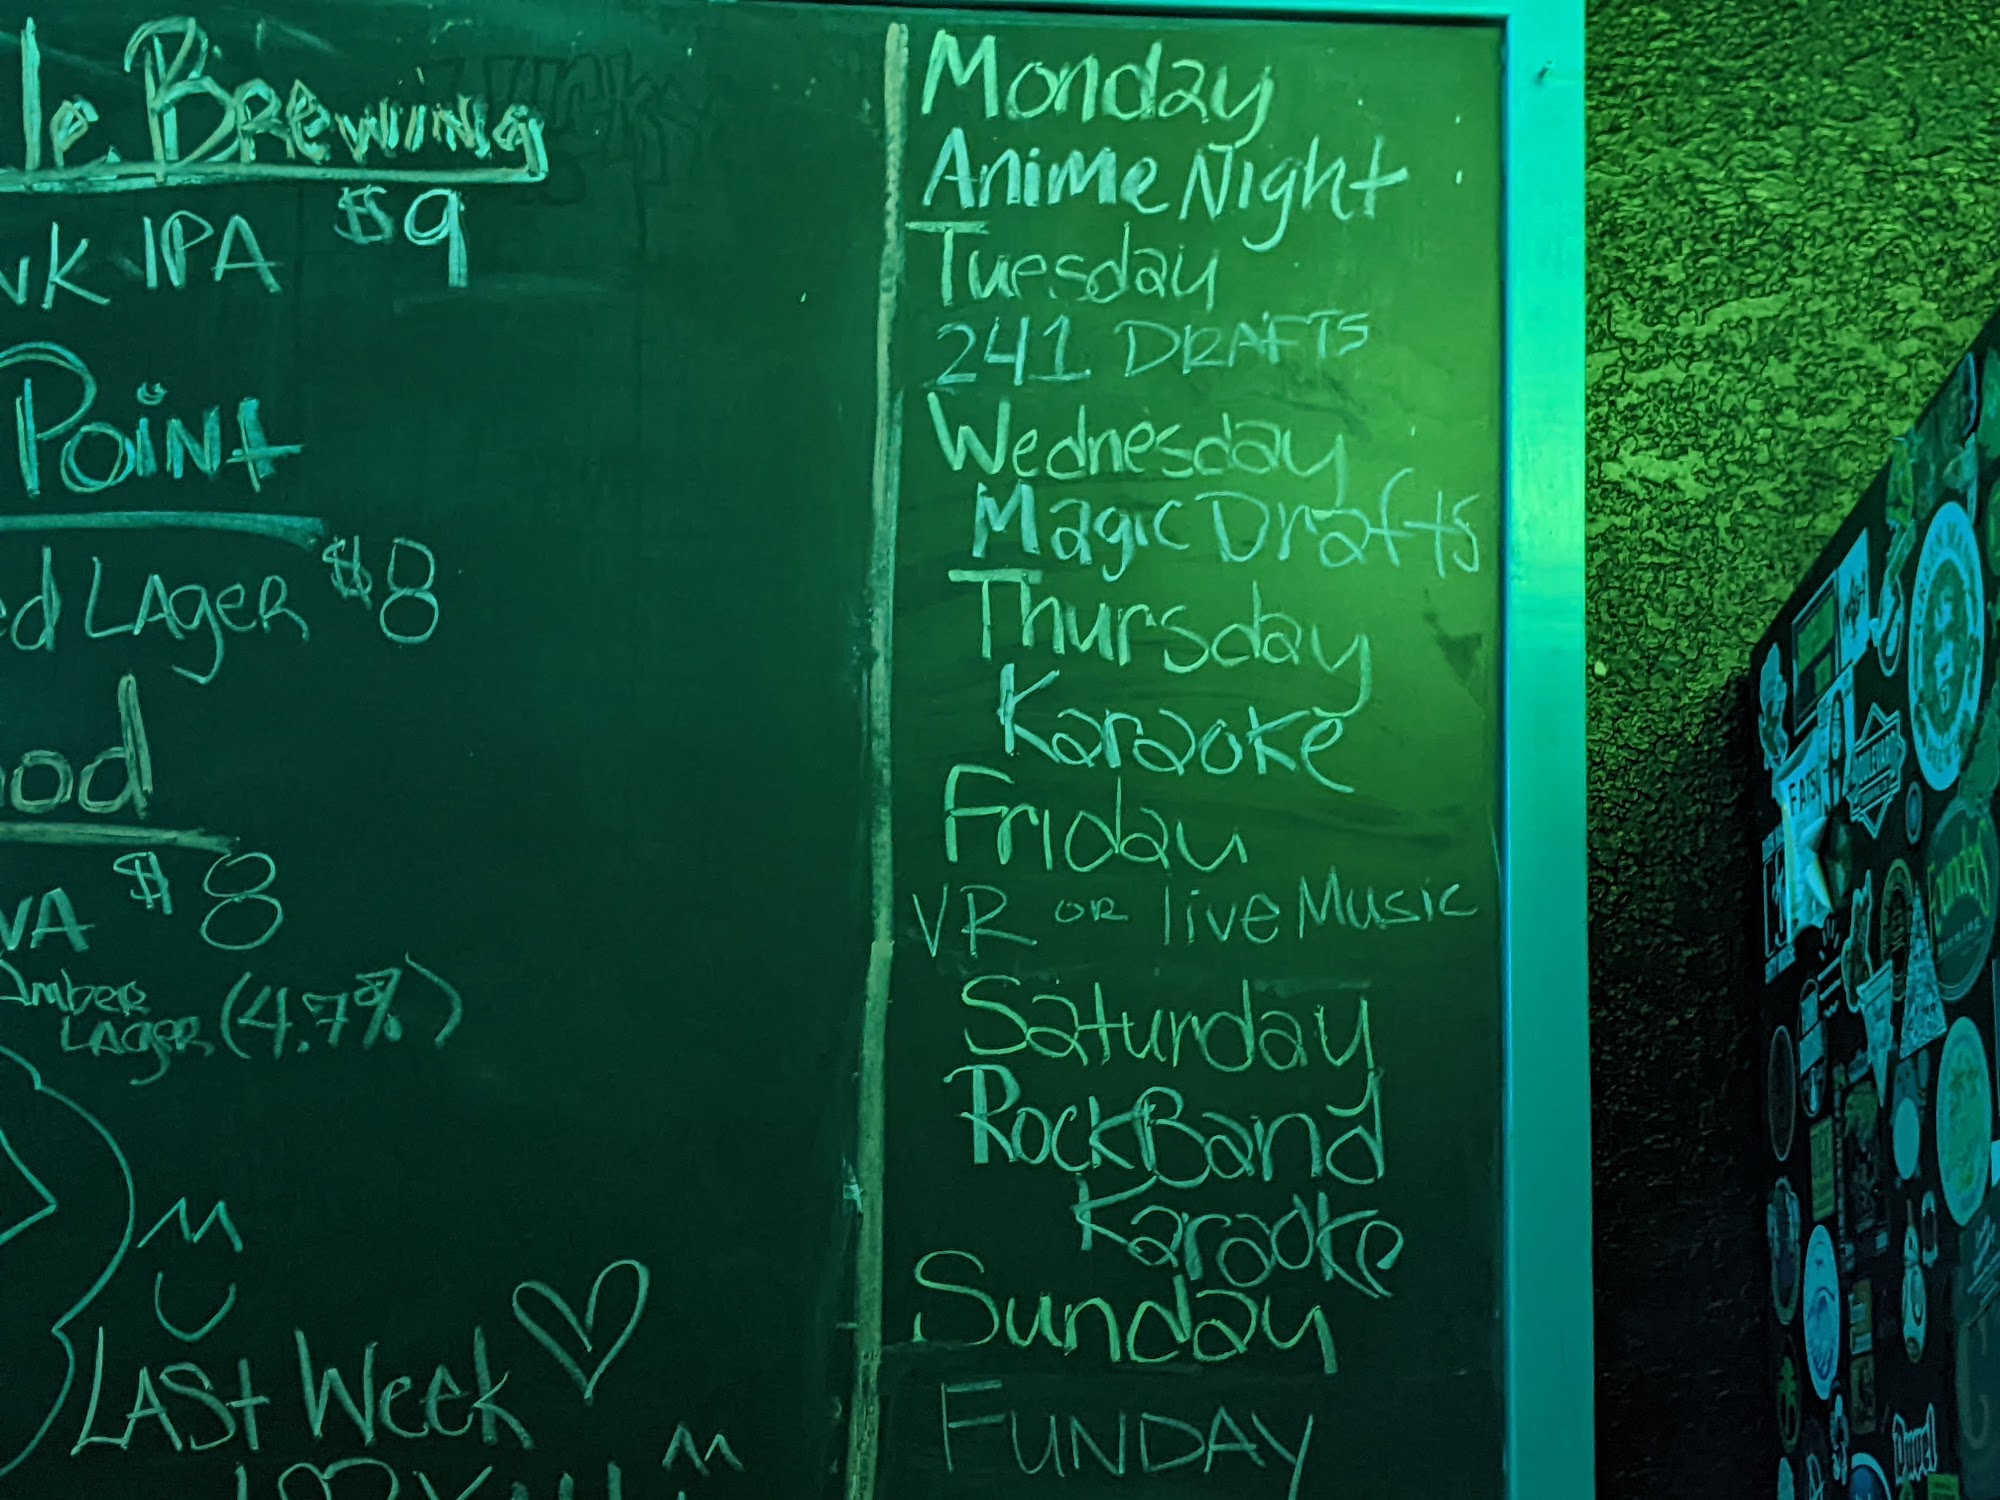 Brewing
IPA $9
Point
Lager $8
$8
Amber
Lager (4.7%)
Last Week
Monday
Anime Night
Tuesday
241 DRAFTS
Wednesday
Magic Drafts
Thursday
Karaoke
Friday
VR OR live Music
Saturday
RockBand
Karaoke
Sunday
FUNDAY
Duvel